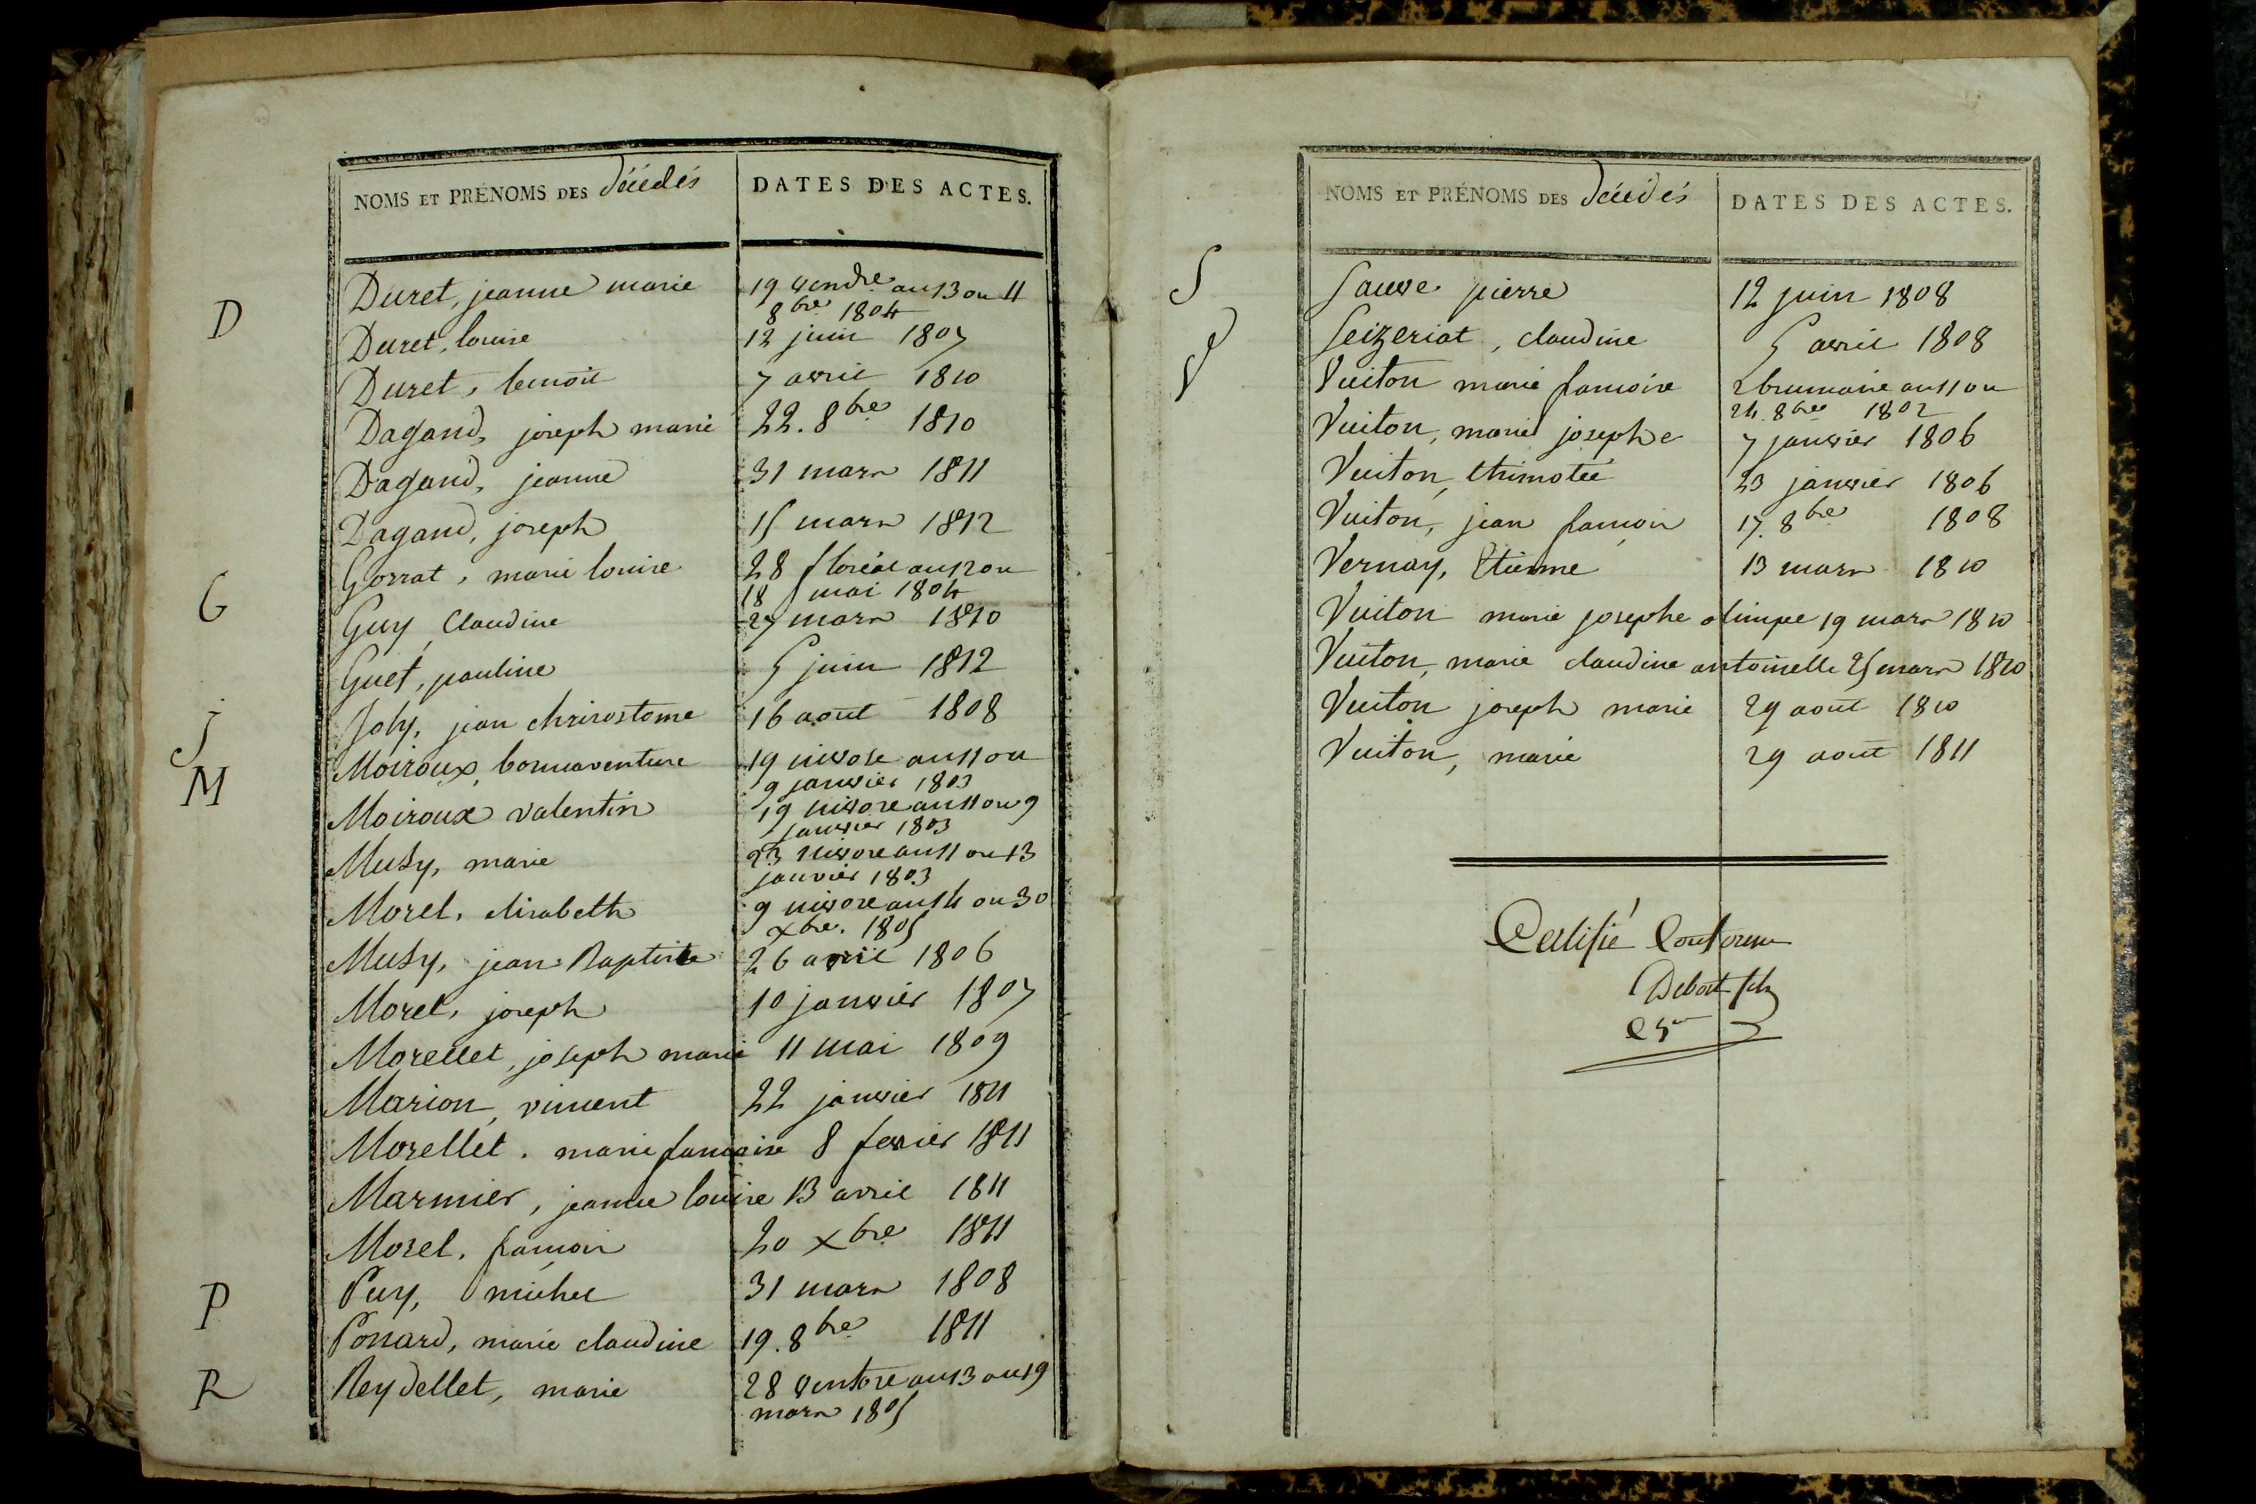 NOMS ET PRÉNOMS DES décédés
DATES DES ACTES.
D
Duret, jeanne marie 19 vendre an 13 ou 11
8bre 1804
Duret, louise 12 juin 1807
Duret, benoit 7 avril 1810
Dagand, joseph marie 22. 8bre 1810
Dagand, jeanne 31 mars 1811
Dagand, joseph 15 mars 1812
G
Gorrat, marie louise 28 floréal an 12 ou
18 mai 1804
Guy, Claudine 27 mars 1810
Guet, pauline 5 juin 1812
j
Joly, jean chrisostome 16 aout 1808
M
Moiroux, bonnaventure 19 nivose an 11 ou
9 janvier 1803
Moiroux valentin 19 nivose an 11 ou 9
janvier 1803
Musy, marie 23 nivose an 11 ou 13
janvier 1803
Morel, elisabeth 9 nivose an 14 ou 30
xbre. 1805
Musy, jean Baptiste 26 avril 1806
Morel, joseph 10 janvier 1807
Morellet, joseph marie 11 mai 1809
Marion, vincent 22 janvier 1811
Morellet. marie francoise 8 fevrier 1811
Marmier, jeanne louise 13 avril 1811
Morel, françois 20 xbre 1811
P
Puy, michel 31 mars 1808
Ponard, marie claudine 19. 8bre 1811
R
Reydellet, marie 28 ventose an 13 ou 19
mars 1805
NOMS ET PRÉNOMS DES décédés
DATES DES ACTES.
S
Sauve pierre 12 juin 1808
Seizeriat, claudine 5 avril 1808
V
Vuiton marie francoise 2 brumaire an 11 ou
24. 8bre 1802
Vuiton, marie josephe 7 janvier 1806
Vuiton, thimotée 23 janvier 1806
Vuiton, jean françois 17. 8bre 1808
Vernay, Etienne 13 mars 1810
Vuiton marie josephe olimpe 19 mars 1810
Vuiton, marie claudine antoinette 25 mars 1810
Vuiton joseph marie 29 aout 1810
Vuiton, marie 29 aout 1811
Certifié Conforme